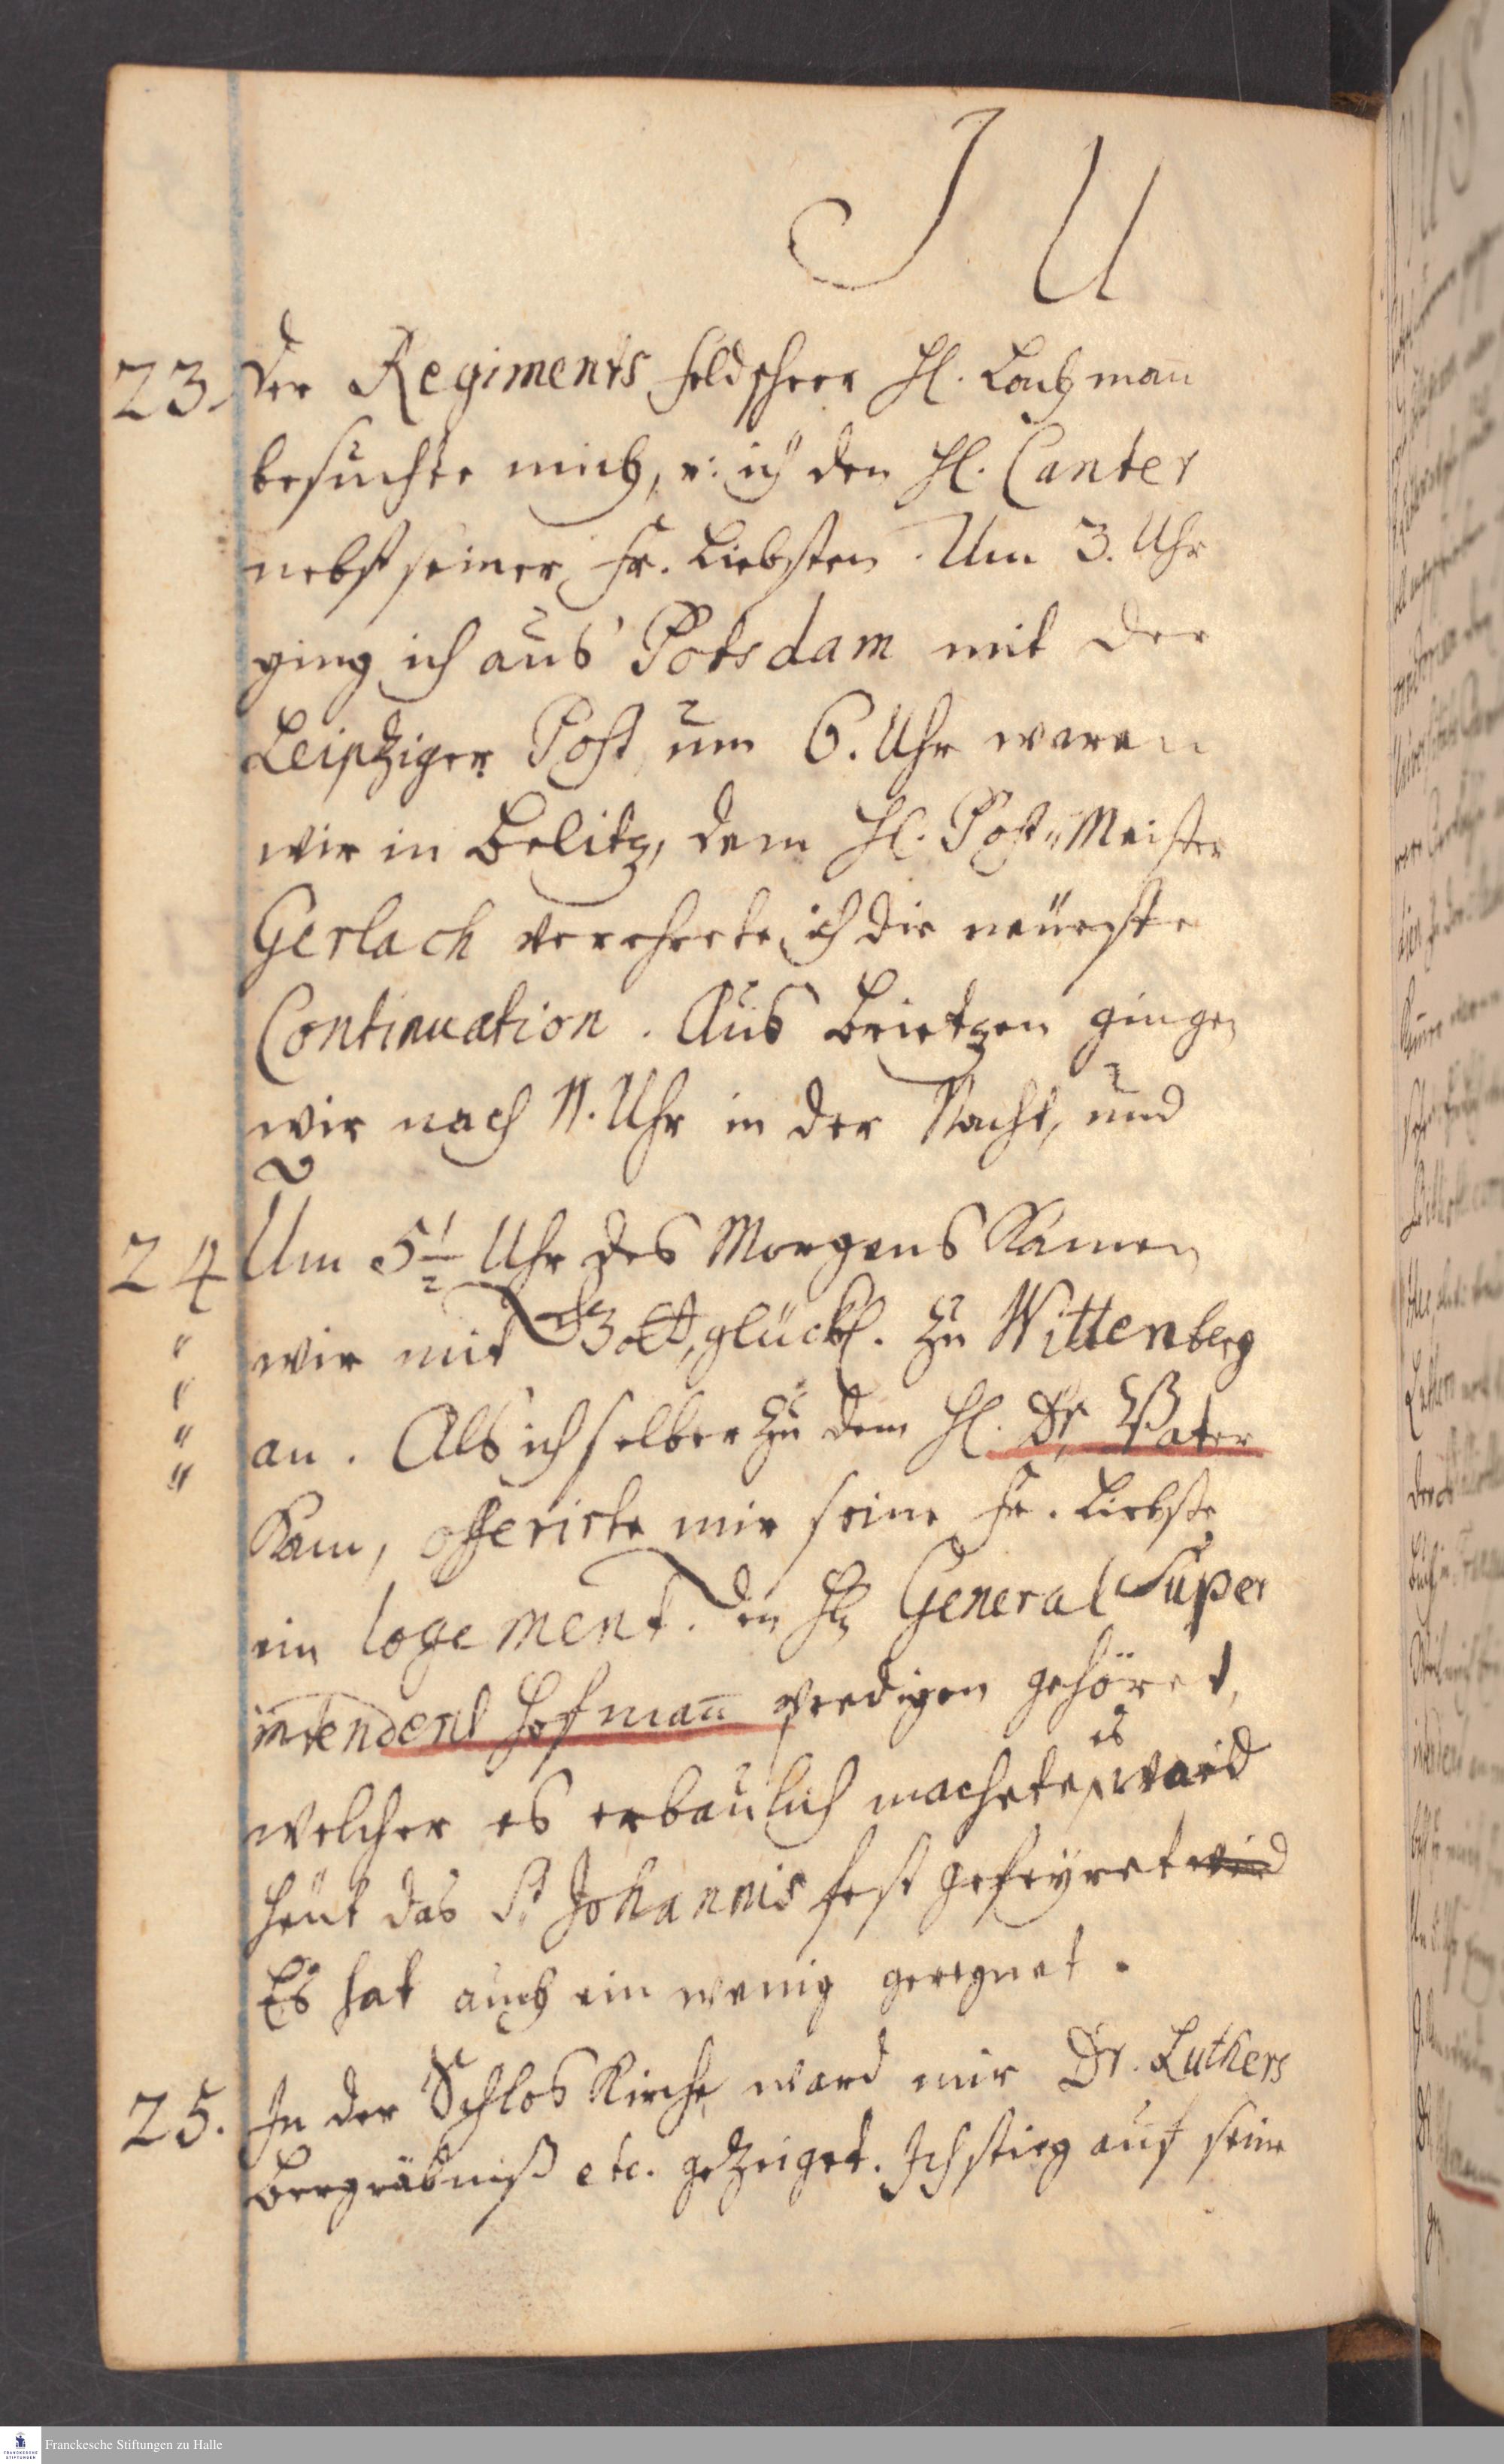 J U
23. Der Regiments feldscherr H. Lachmañ
besuchte mich, u: ich den H. Canter
nebst seiner Fr. Liebsten. Um 3. Uhr
ging ich aus Potsdam mit der
Leipziger Post, um 6. Uhr waren
wir in Belitz, dem H. Post-Meister
Gerlach verehrte ich die neueste
Continuation. Aus Brietzen gingen
wir nach 11. Uhr in der Nacht, und
24 Um 5 1/2 Uhr des Morgens kamen
wir mit Gott, glückl. zu Wittenberg
an. Als ich selber zu dem H. Dr. Vater
kam, offerirte mir seine Fr. Liebste
ein logement. Den Hn General Super
intendent Hofmañ predigen gehöret,
welcher es erbaulich machete, es ward
heut das St. Johannis fest gefeyret wird
Es hat auch ein wenig geregnet.
25. In der Schlos Kirche ward mir Dr. Luthers
Begräbniß etc. gezeiget. Ich stieg auf seine
Franckesche Stiftungen zu Halle